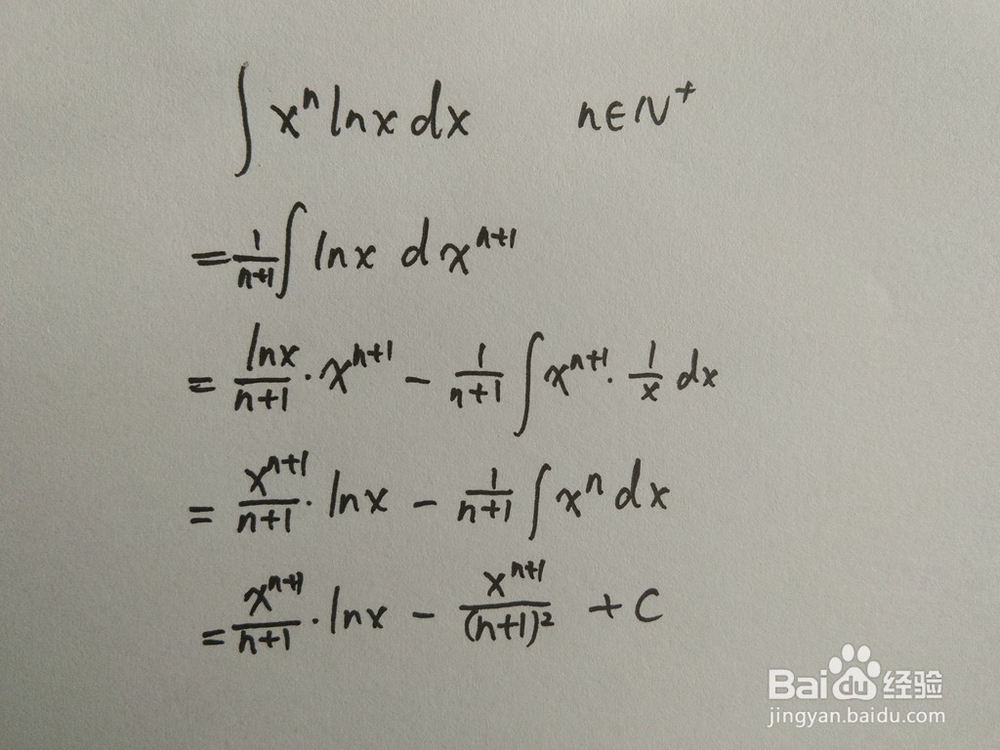 ∫ xⁿ ln x dx n∈N⁺
= 1/(n+1) ∫ ln x d xⁿ⁺¹
= ln x/(n+1) · xⁿ⁺¹ − 1/(n+1) ∫ xⁿ⁺¹ · 1/x dx
= xⁿ⁺¹/(n+1) · ln x − 1/(n+1) ∫ xⁿ dx
= xⁿ⁺¹/(n+1) · ln x − xⁿ⁺¹/(n+1)² + C
Baidu经验
jingyan.baidu.com